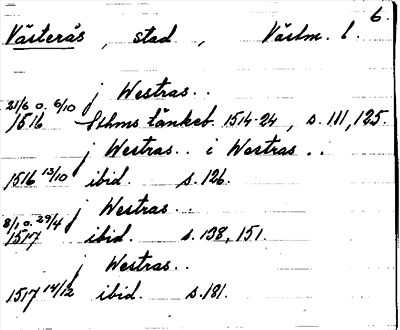 6.
Västerås, stad, Västm. l.
j Westras..
21/6 o. 6/10
1516 Sthms tänkeb. 1514-24, s. 111, 125.
j Westras.. i Westras..
1516 13/10 ibid. s. 126.
j Westras..
8/1 o. 29/4
1517 ibid. s. 138, 151.
j Westras..
1517 14/12 ibid. s. 181.